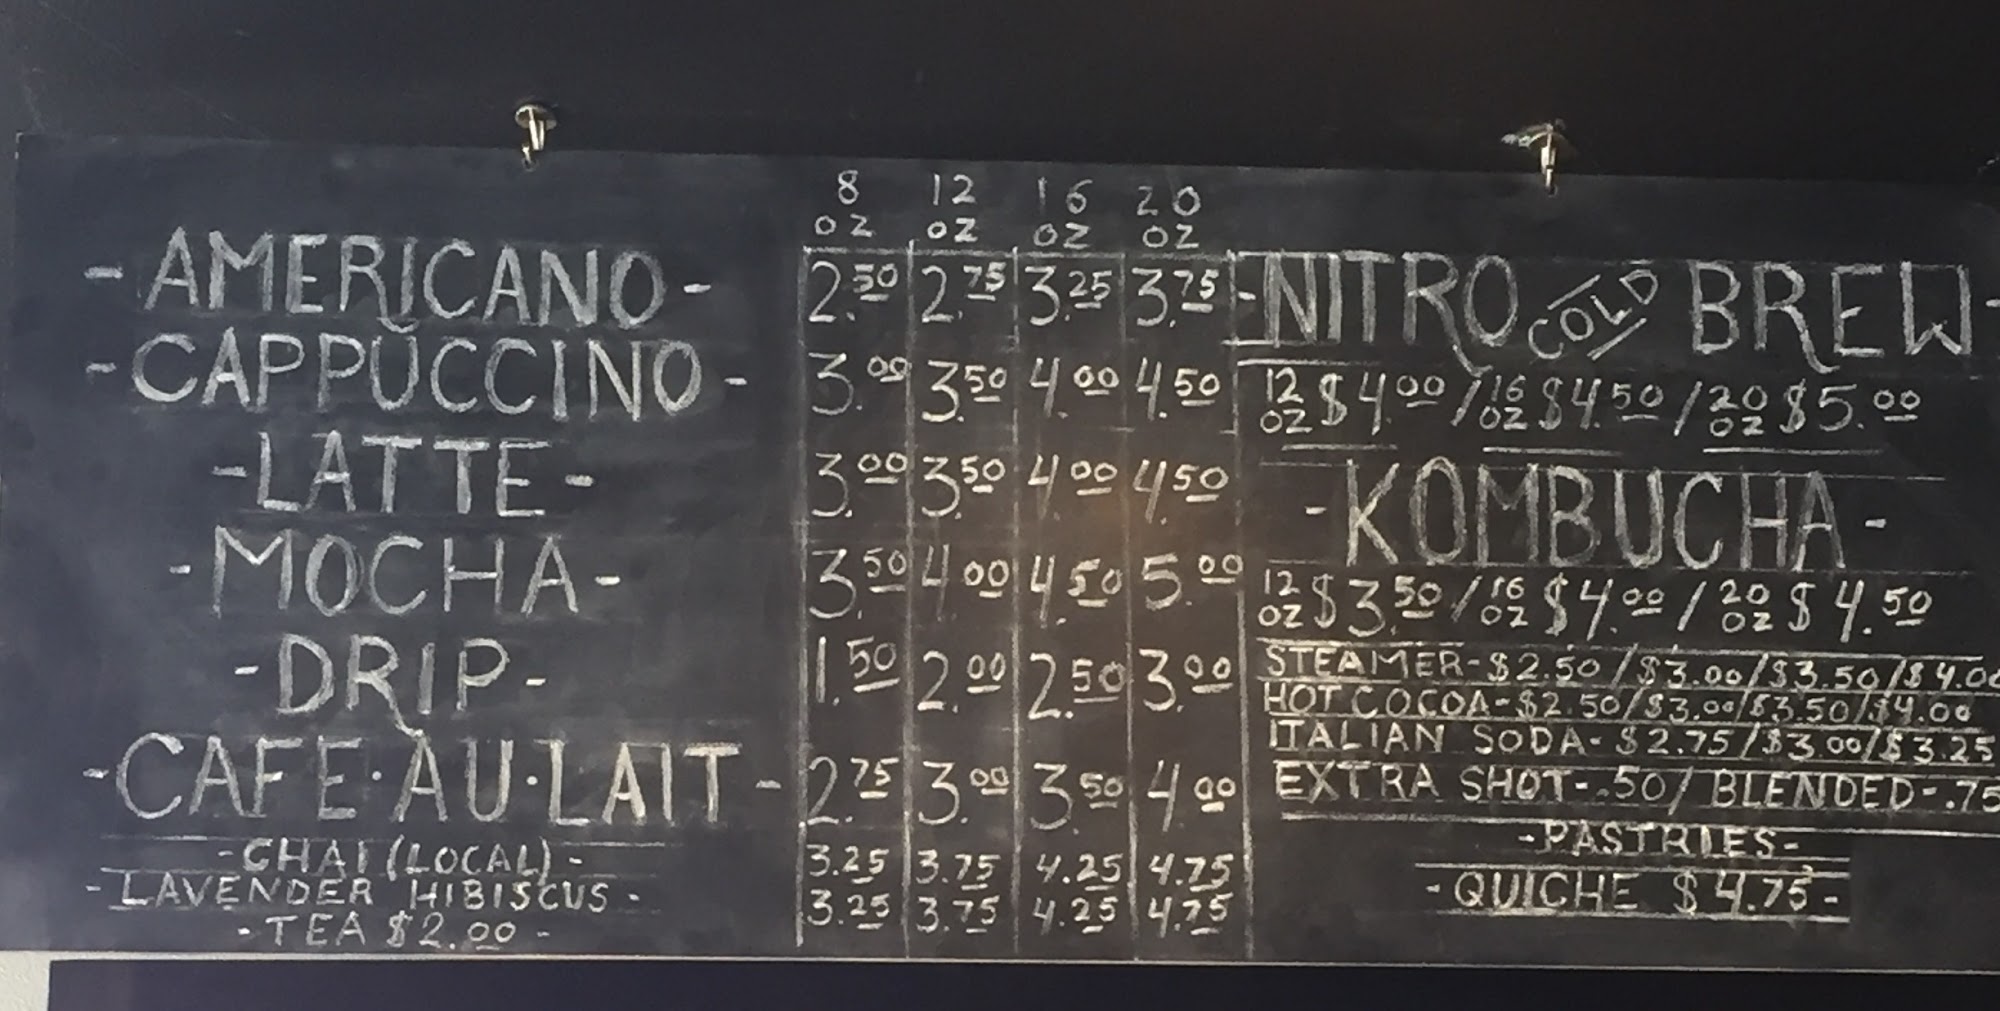 8 OZ 12 OZ 16 OZ 20 OZ
-AMERICANO- 2.50 2.75 3.25 3.75
-CAPPUCCINO- 3.00 3.50 4.00 4.50
-LATTE- 3.00 3.50 4.00 4.50
-MOCHA- 3.50 4.00 4.50 5.00
-DRIP- 1.50 2.00 2.50 3.00
-CAFE·AU·LAIT- 2.75 3.00 3.50 4.00
-CHAI (LOCAL)- 3.25 3.75 4.25 4.75
-LAVENDER HIBISCUS- 3.25 3.75 4.25 4.75
-TEA $2.00-
-NITRO COLD BREW-
12 OZ $4.00 / 16 OZ $4.50 / 20 OZ $5.00
-KOMBUCHA-
12 OZ $3.50 / 16 OZ $4.00 / 20 OZ $4.50
STEAMER-$2.50/$3.00/$3.50/$4.00
HOT COCOA-$2.50/$3.00/$3.50/$4.00
ITALIAN SODA-$2.75/$3.00/$3.25
EXTRA SHOT-.50/ BLENDED-.75
-PASTRIES-
-QUICHE $4.75-